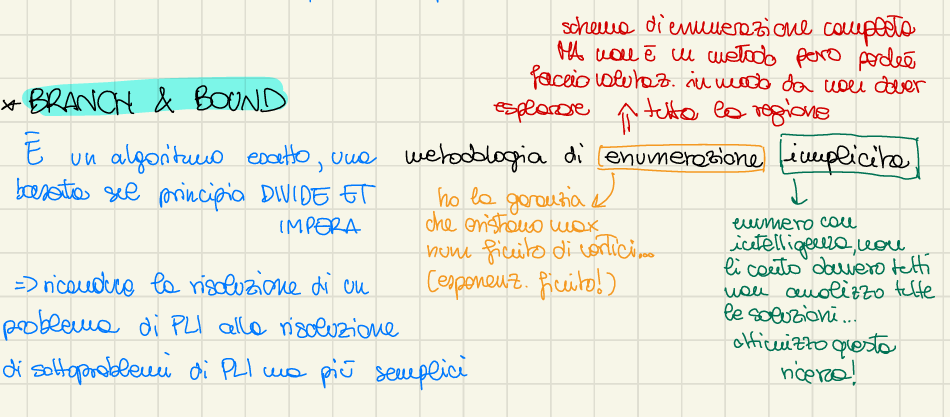 schema di enumerazione completa
MA non è un metodo puro perché
faccio valutaz. in modo da non dover
esplorare tutta la regione
* BRANCH & BOUND
È un algoritmo esatto, una metodologia di enumerazione implicita
basata sul principio DIVIDE ET
IMPERA
ho la garanzia
che esistano max
num finito di vertici...
(esponenz. finito!)
enumero con
intelligenza, non
li conto davvero tutti
non analizzo tutte
le soluzioni...
ottimizzo questa
ricerca!
=> riconduco la risoluzione di un
problema di PLI alla risoluzione
di sottoproblemi di PLI ma più semplici